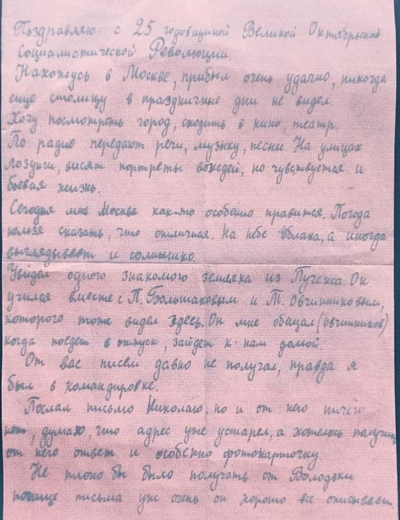 Поздравляю с 25 годовщиной Великой Октябрьской
Социалистической Революции.
Нахожусь в Москве, прибыл очень удачно, никогда
еще столицу в праздничные дни не видел.
Хочу посмотреть город, сходить в кино, театр.
По радио передают речи, музыку, песни. На улицах
лозунги, висят портреты вождей, но чувствуется и
боевая жизнь.
Сегодня мне Москва как-то особенно нравится. Погода
нельзя сказать, что отличная. На небе облака, а иногда
выглядывает и солнышко
Увидел одного знакомого земляка из Пучежа. Он
учился вместе с П. Большаковым и М. Овчинниковым,
которого тоже видел здесь. Он мне обещал (овчинников)
когда поедет в отпуск, зайдет к нам домой
От вас писем давно не получал, правда я
был в командировке.
Послал письмо Николаю, но и от него ничего
нет, думаю, что адрес уже устарел, а хотелось получить
от него ответ и особенно фотокарточку
Не плохо бы было получать от Володьки
почаще письма уж очень он хорошо все описывает